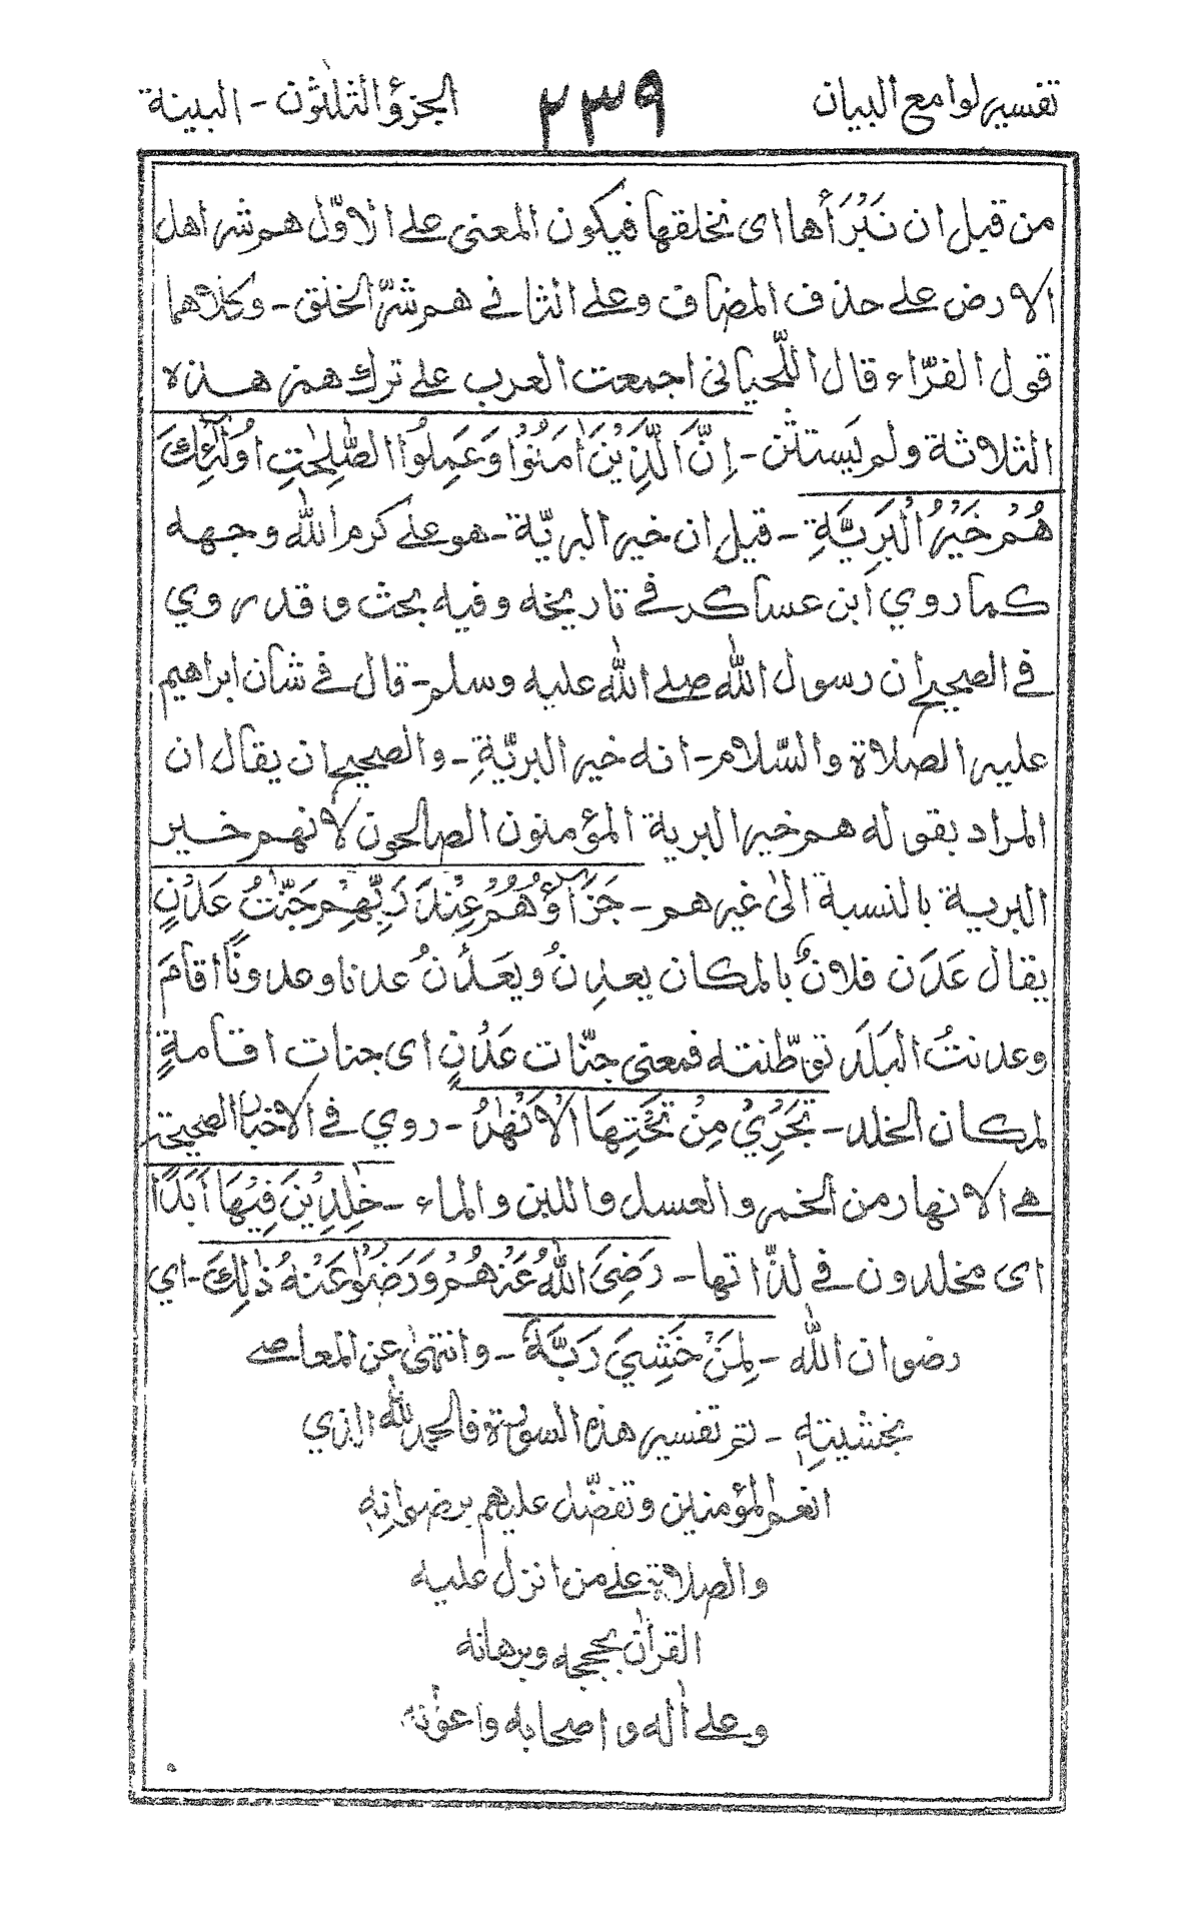 تفسير لوامع البيان ٢٣٩ الجزؤ الثلٰثون - البينة
من قبل ان نَبْرَأَها اى نخلقها فيكون المعنى على الاوّل هم شر اهل
الارض على حذف المضاف وعلى الثانى هم شرّ الخلق - وكلاهما
قول الفرّاء قال اللّحيانى اجمعت العرب على ترك همز هذه
الثلاثة ولم يَستثن - اِنَّ الَّذِيْنَ اٰمَنُوْا وَعَمِلُوا الصّٰلِحٰتِ اُولٰٓئِكَ
هُمْ خَيْرُ الْبَرِيَّةِ - قيل ان خير البريّة - هو على كرم الله وجهه
كما روي ابن عساكر فى تاريخه وفيه بحث وقد روي
فى الصحيح ان رسول الله صلے الله عليه وسلم - قال فى شان ابراهيم
عليه الصلاة والسّلام - انه خير البريّةِ - والصحيح ان يقال ان
المراد بقوله هم خير البرية المؤمنون الصالحون لانهم خير
البرية بالنسبة الىٰ غيرهم - جَزَآؤُهُمْ عِنْدَ رَبِّهِمْ جَنّٰتُ عَدْنٍ
يقال عَدَن فلانٌ بالمكان يعدِنُ ويَعدُنُ عدنا وعدونًا اقامَ
وعدنتُ البَلَدَ توطّنته فمعنى جنّات عَدْنٍ اى جنات اقامةٍ
لمكان الخلد - تَجْرِيْ مِنْ تَحْتِهَا الْاَنْهٰرُ - روي فى الاخبار الصحيحة
هى الانهار من الخمر والعسل واللبن والماء - خٰلِدِيْنَ فِيْهَا اَبَدًا
اى مخلدون فى لذّاتها - رَضِىَ اللّٰهُ عَنْهُمْ وَرَضُوْا عَنْهُ ذٰلِكَ - اي
رضوان اللّٰه - لِمَنْ خَشِيَ رَبَّهٗ - وانتهىٰ عن المعاصے
بخشيتهٖ - تم تفسير هذه السورة فالحمد للّٰه الذي
انعم المؤمنين وتفضّل عليهم برضوانهٖ
والصلاة على من انزل عليه
القراٰن بحججه وبرهانه
وعلى اٰله واصحابه واعوانه